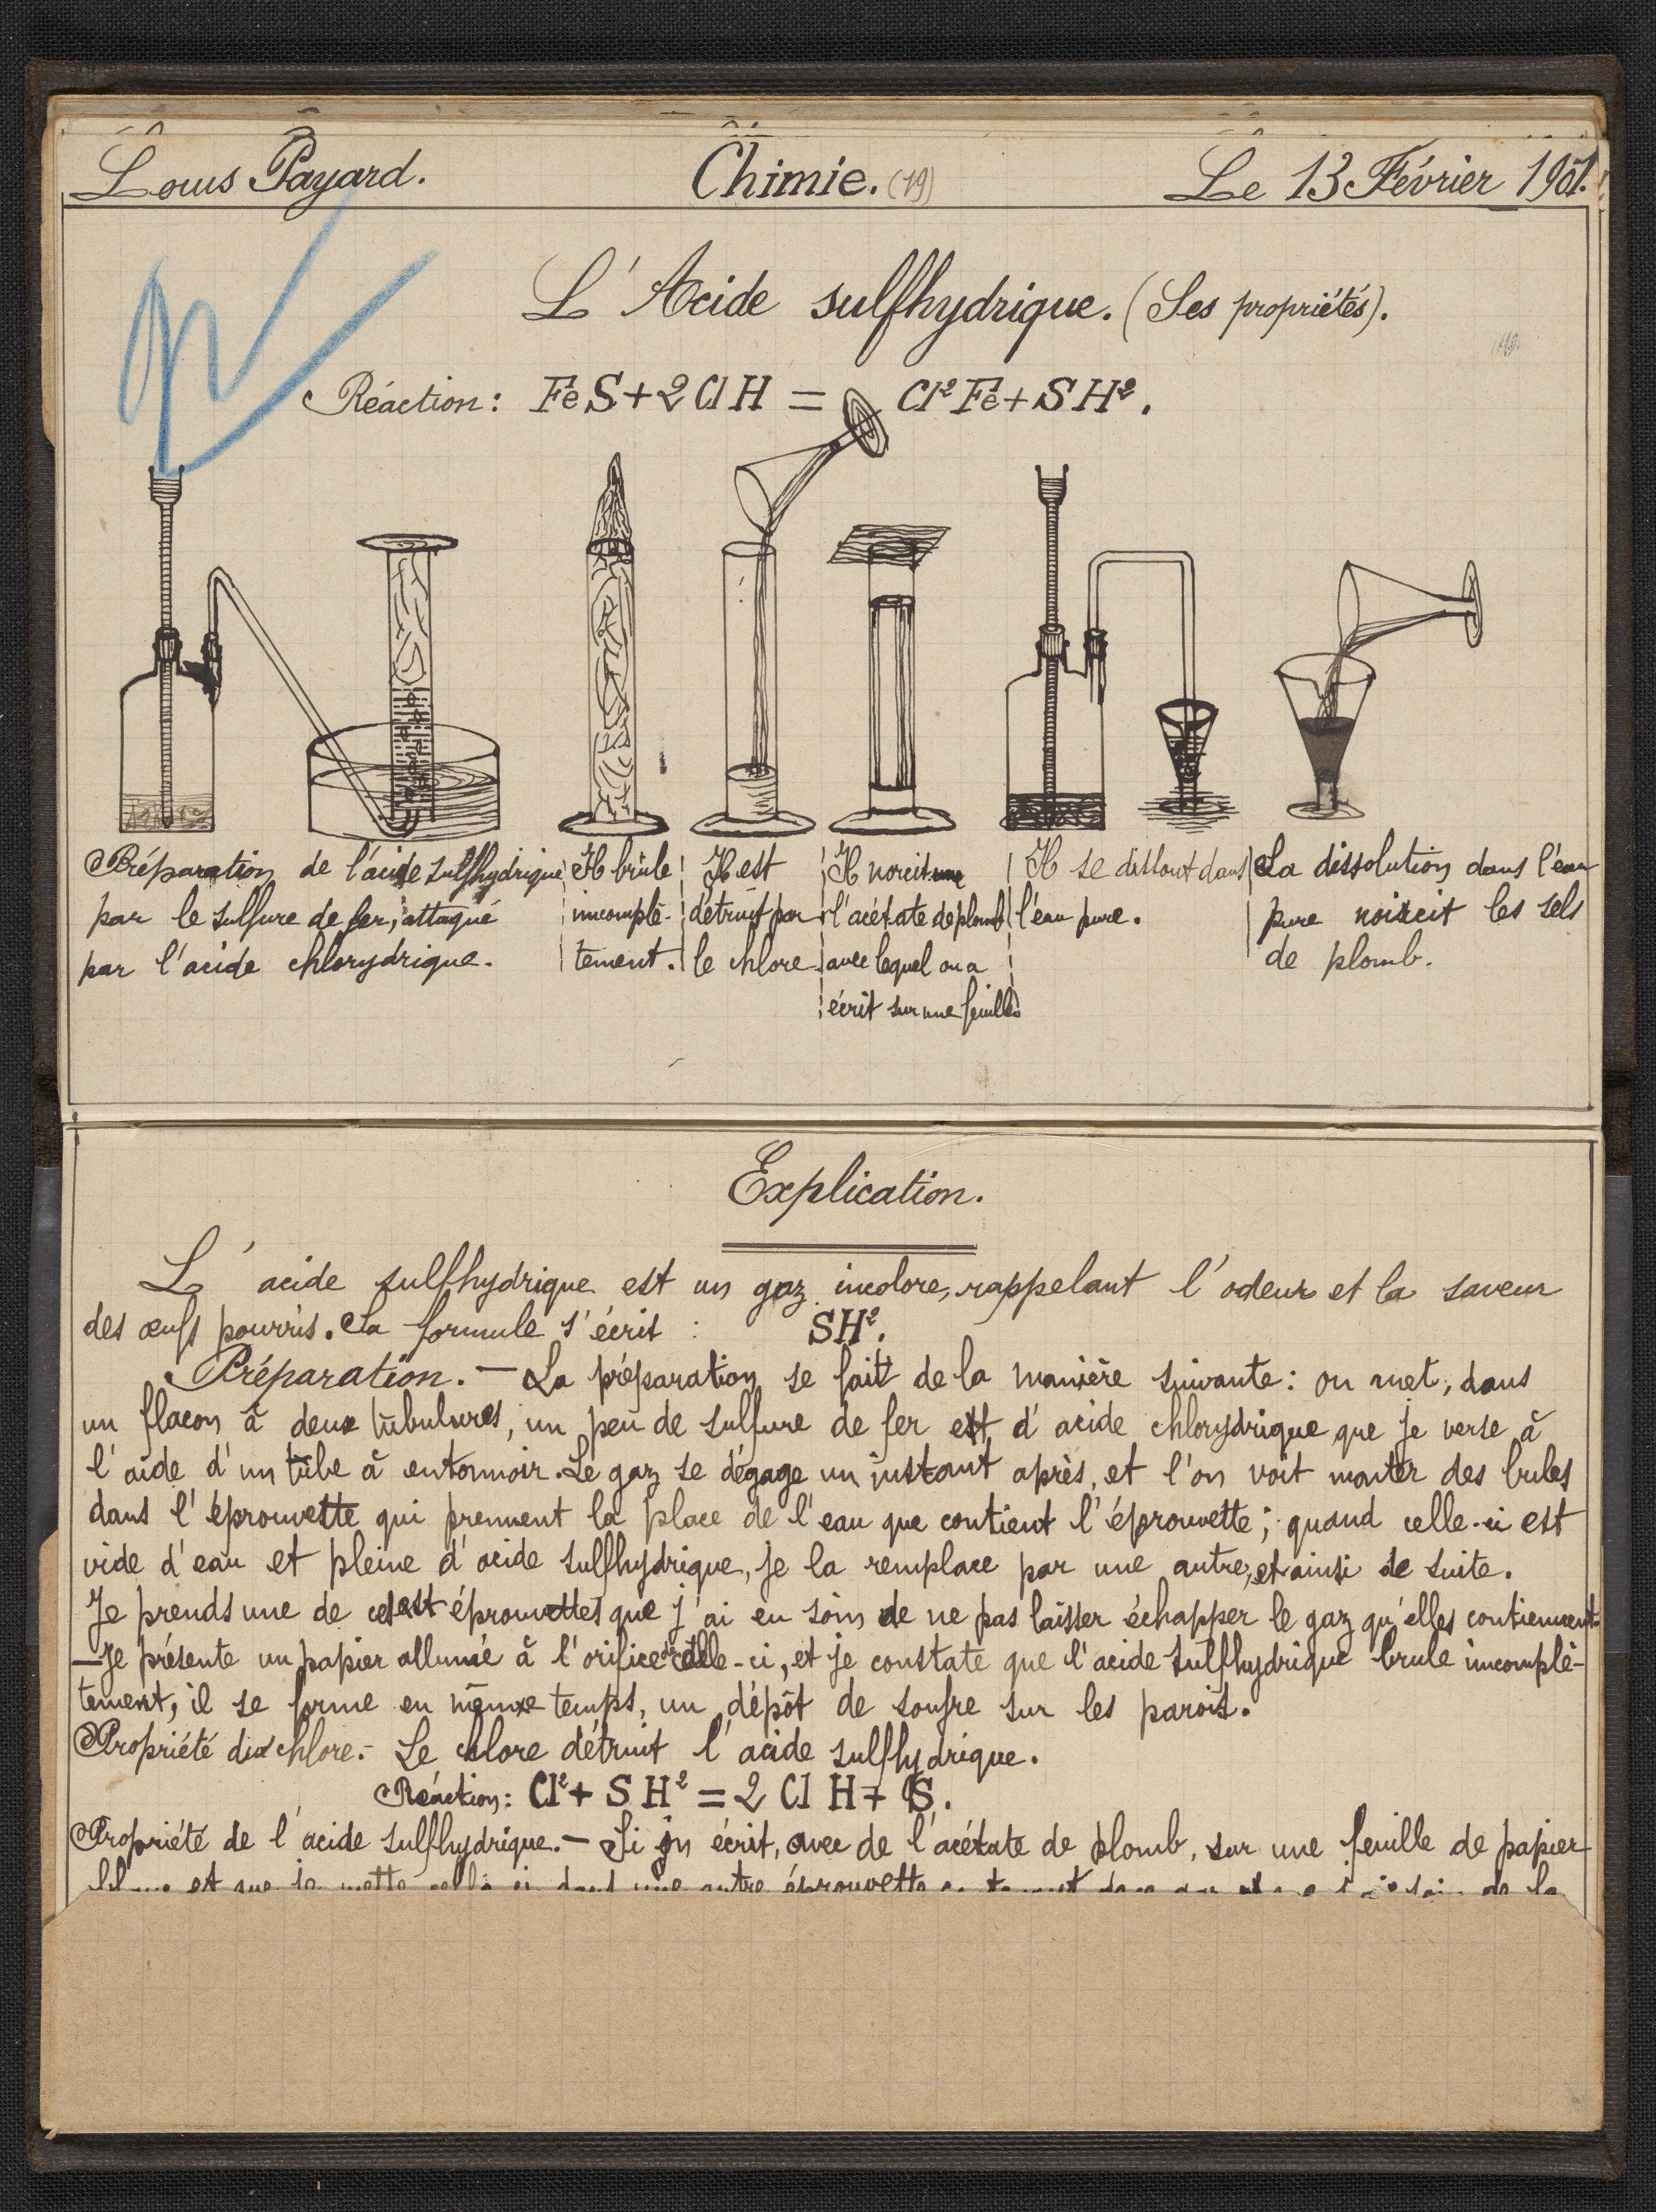 Louis Payard.
Chimie. (19)
Le 13 Février 1901.
L'Acide sulfhydrique. (Ses propriétés).
Réaction: FeS + 2 Cl H = Cl² Fe + S H².
Préparation de l'acide sulfhydrique
par le sulfure de fer, attaqué
par l'acide chlorydrique.
Il brûle
imcomplè-
tement.
Il est
détruit par
le chlore
Il norcit
l'acétate de plomb
avec lequel on a
écrit sur une feuille
Il se dissout dans
l'eau pure.
La dissolution dans l'eau
pure noircit les sels
de plomb.
Explication.
L'acide sulfhydrique est un gaz incolore, rappelant l'odeur et la saveur
des œufs pourris. Sa formule s'écrit : SH².
Préparation. — La préparation se fait de la manière suivante : on met, dans
un flacon à deux tubulures, un peu de sulfure de fer et d'acide chlorydrique que je verse à
l'aide d'un tube à entonnoir. Le gaz se dégage un instant après, et l'on voit monter des bules
dans l'éprouvette qui prennent la place de l'eau que contient l'éprouvette ; quand celle-ci est
vide d'eau et pleine d'acide sulfhydrique, je la remplace par une autre, et ainsi de suite.
Je prends une de ces éprouvettes que j'ai eu soin de ne pas laisser échapper le gaz qu'elles contiennent.
— Je présente un papier allumé à l'orifice de celle-ci, et je constate que l'acide sulfhydrique brule imcomplè-
tement, il se forme en même temps, un dépôt de soufre sur les parois.
Propriété du chlore. — Le chlore détruit l'acide sulfhydrique.
Réaction : Cl² + S H² = 2 Cl H + S.
Propriété de l'acide sulfhydrique. — Si on écrit, avec de l'acétate de plomb, sur une feuille de papier
et que je mette celle-ci dans une autre éprouvette